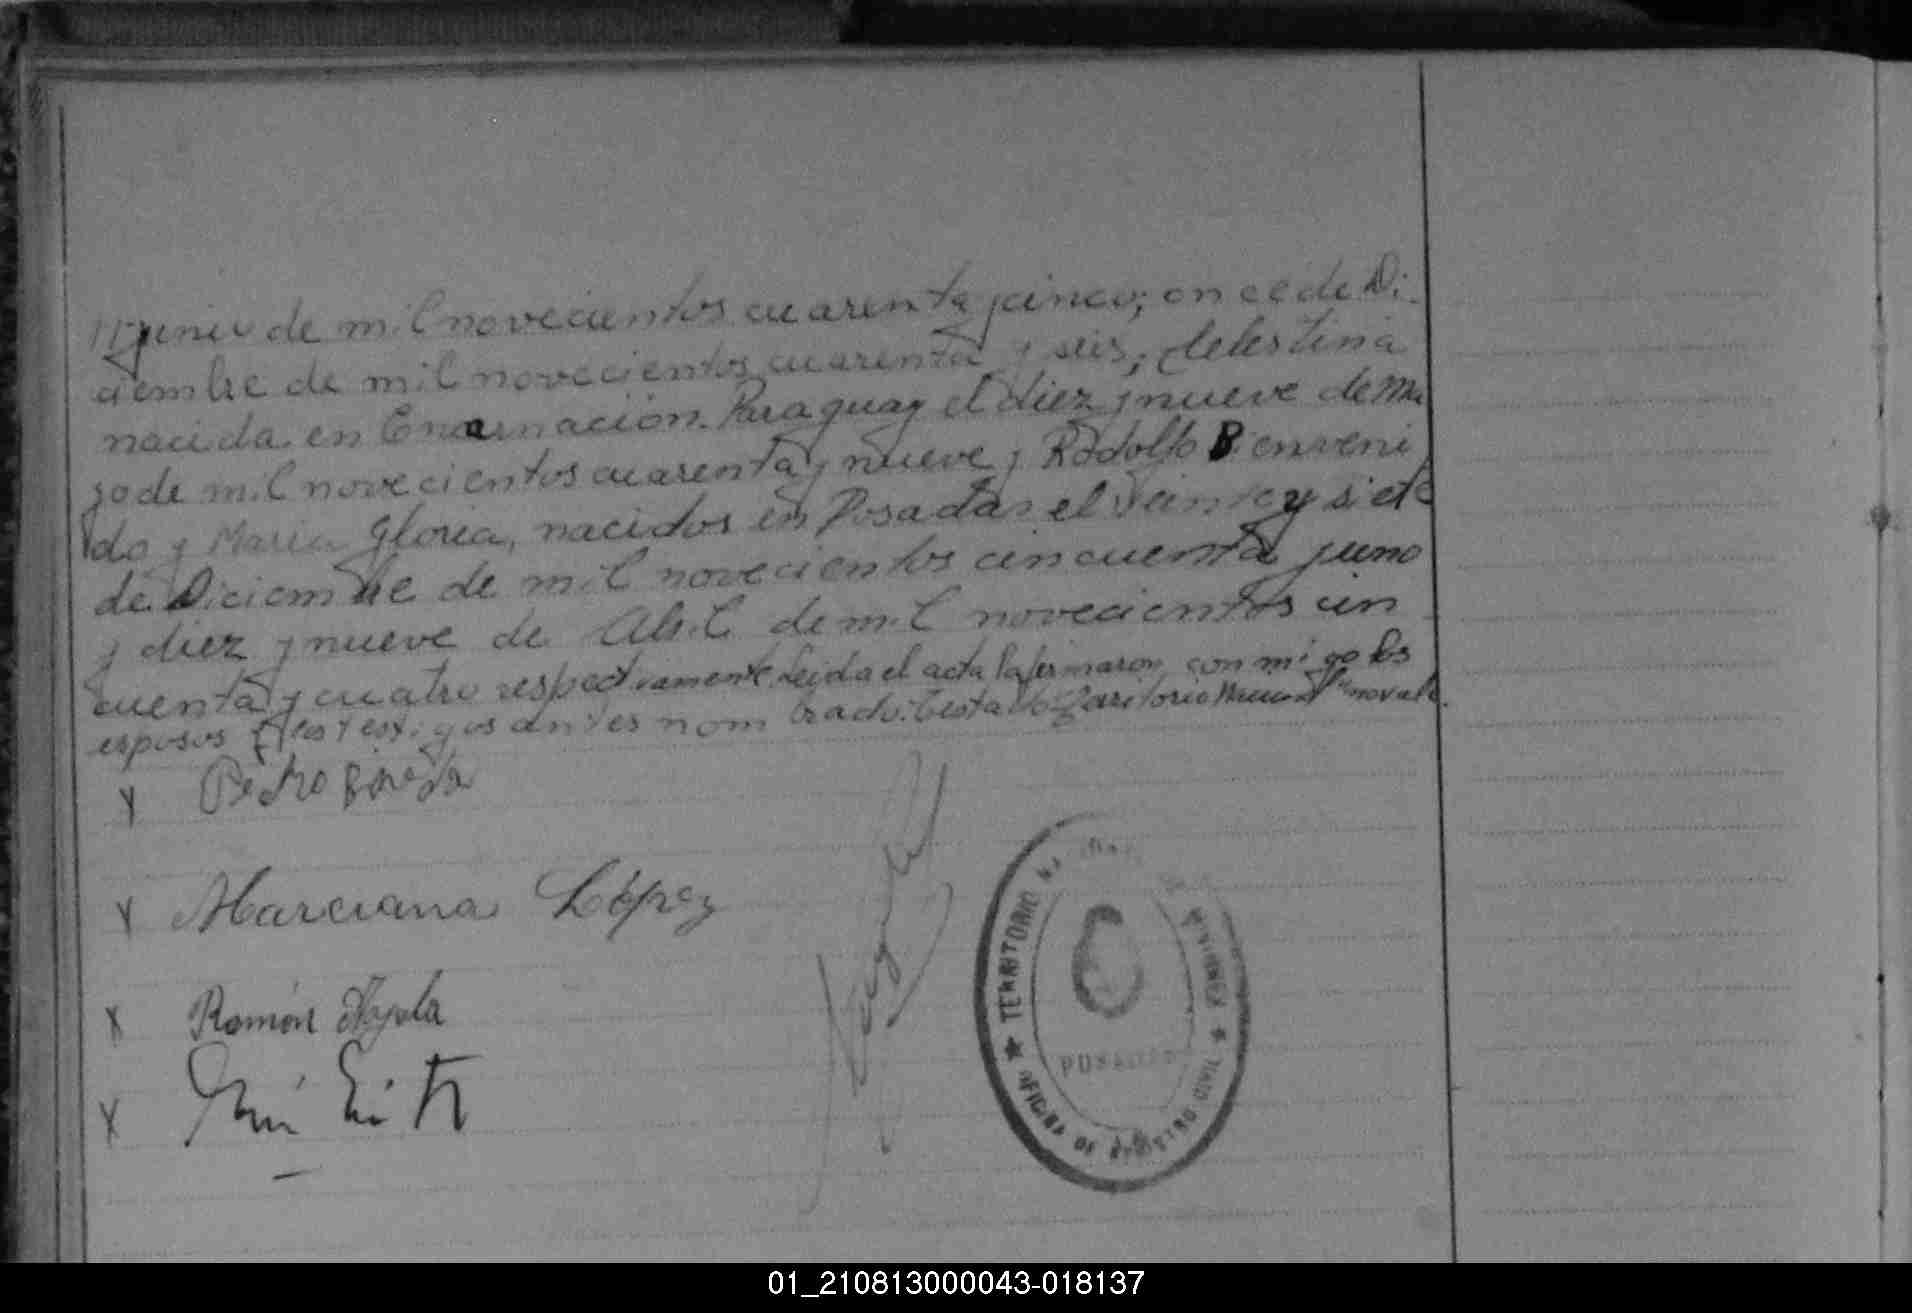 junio de mil novecientos cuarenta y cinco; once de Di-
ciembre de mil novecientos cuarenta y seis; Celestina
nacida en Encarnación. Paraguay el diez y nueve de Ma
zo de mil novecientos cuarenta y nueve y Rodolfo Bienveni
do y María Gloria, nacidos en Posadas el veinte y siete
de Diciembre de mil novecientos cincuenta y uno
y diez y nueve de Abril de mil novecientos cin
cuenta y cuatro respectivamente. Leida el acta la firmaron con migo los
esposos y los testigos antes nombrado. Testado Territorio Nacional no vale.
x Pedro
x Marciana López
x Ramón Ayala
x
TERRITORIO MISIONES
POSADAS
OFICINA DE REGISTRO CIVIL
01_210813000043-018137